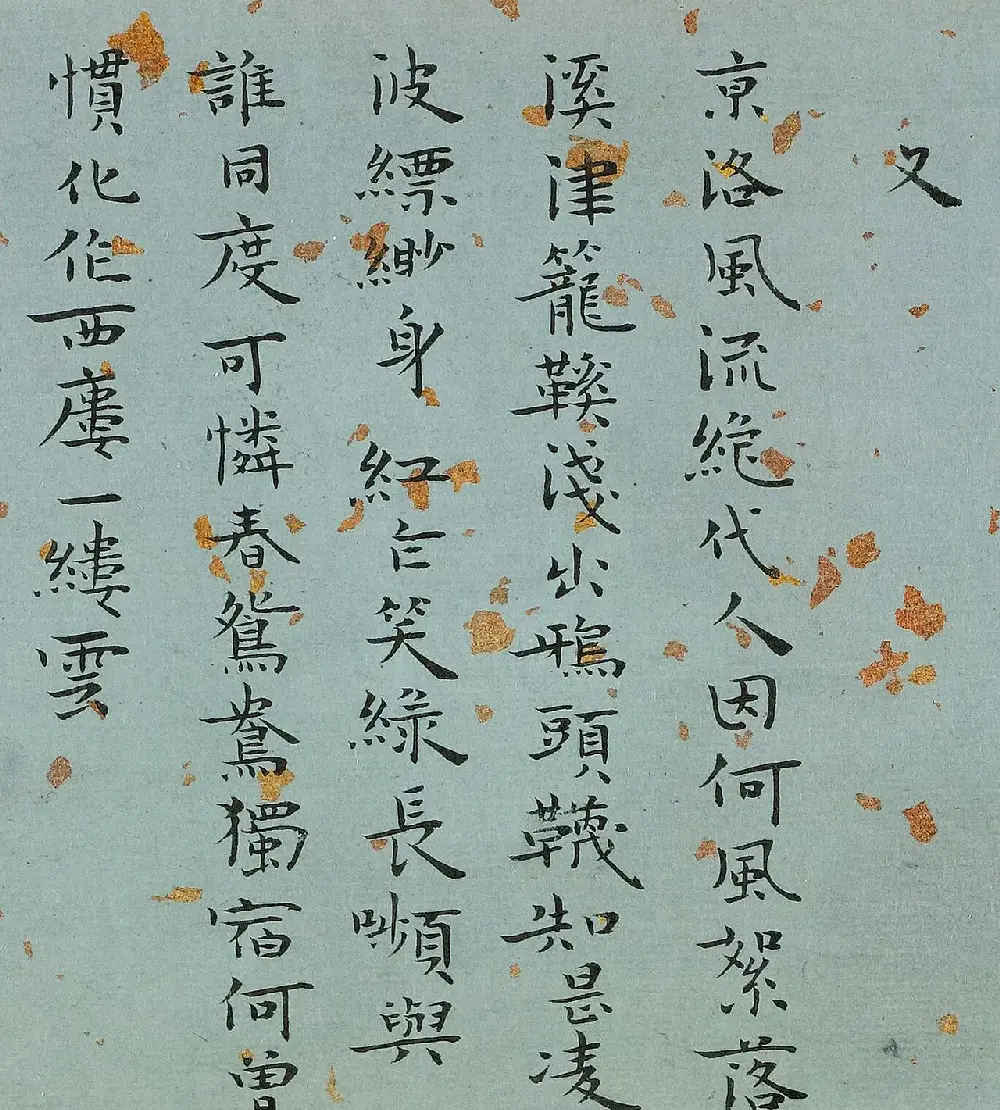 又
京洛風流絶代人因何風絮落
溪津籠鞵淺出鴉頭韈知是凌
波縹緲身 紅乍笑綠長嚬與
誰同度可憐春鴛鴦獨宿何曾
慣化作西廔一縷雲